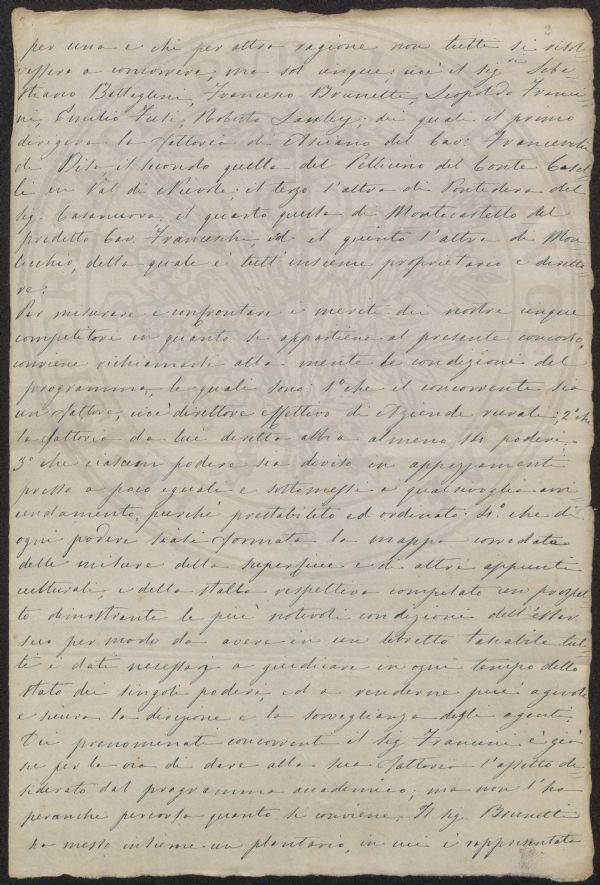 2
per una e chi per altra ragione non tutti si risol-
vessero a concorrere; ma sol cinque, cioè il sig.ri Seba-
stiano Battaglini, Francesco Brunetti, Leopoldo Franci-
ni, Emilio Fusi, Roberto Lawley; dei quali il primo
dirigeva la fattoria di Asciano del Cav. Franceschi
di Pisa il secondo quella del Pellicino del Conte
in Val di Nievole; il terzo l'altra di Pontedera del
Sig. Casanuova, il quarto quella di Montecastello del
predetto Cav. Franceschi, ed il quinto l'altra di Mon-
tecchio, della quale è tutt'insieme proprietario e diretto-
re.
Per misurare e confrontare i meriti dei nostri cinque
competitori in quanto si appartiene al presente concorso,
conviene richiamarsi alla mente le condizioni del
programma, le quali sono: 1.° che il concorrente sia
un fattore, cioè direttore effettivo di Aziende rurali; 2.° che
la fattoria da lui diretta abbia almeno poderi;
3.° che ciascun podere sia diviso in appezzamenti
presso a poco eguali e sottomessi a qualsivoglia avvi-
cendamento, purchè prestabilito ed ordinato; 4.° che di
ogni podere siasi formata la mappa corredata
delle misure della superficie e di altri appunti
culturali, e della stalla respettiva compilato un prospet-
to dimostrante le più notevoli condizioni dell'esser
suo per modo da avere in un libretto tascabile tut-
ti i dati necessarj a giudicare in ogni tempo dello
stato dei singoli poderi, ed a renderne più agevole
e sicura la direzione e la sorveglianza degli agenti.
Dei prenominati concorrenti il sig. Francini è già
per la via di dare alla sua fattoria l'assetto de-
siderato dal programma accademico; ma non l'ha
peranche percorsa quanto si conviene. Il sig. Brunetti
ha messo insieme un plantario, in cui è rappresentata